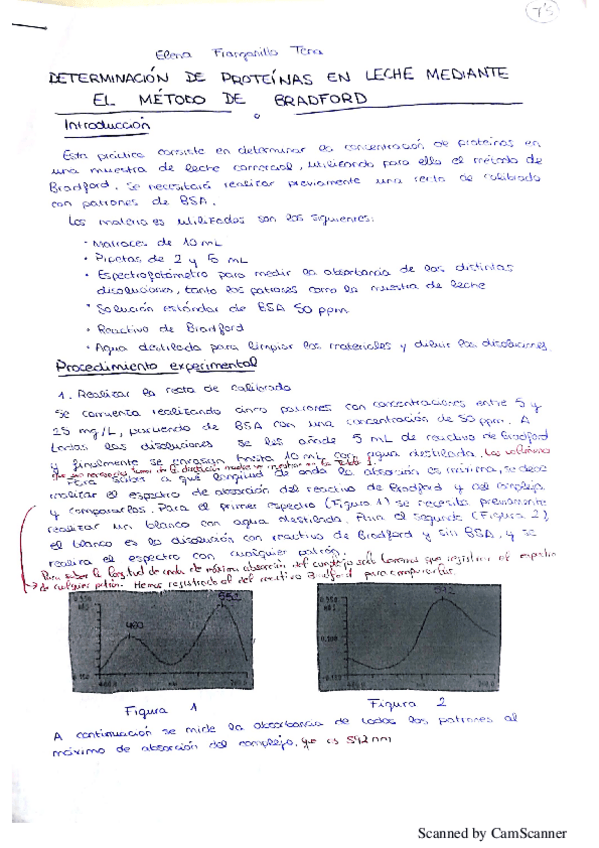 7'5
Elena Franganillo Tena
DETERMINACIÓN DE PROTEÍNAS EN LECHE MEDIANTE
EL MÉTODO DE BRADFORD
Introducción
Esta práctica consiste en determinar la concentración de proteínas en
una muestra de leche comercial, utilizando para ello el método de
Bradford. Se necesitará realizar previamente una recta de calibrado
con patrones de BSA.
Los materiales utilizados son los siguientes:
· Matraces de 10 mL
· Pipetas de 2 y 5 mL
· Espectrofotómetro para medir la absorbancia de las distintas
disoluciones, tanto los patrones como la muestra de leche
· Solución estándar de BSA 50 ppm
· Reactivo de Bradford
· Agua destilada para limpiar los materiales y diluir las disoluciones
Procedimiento experimental
1. Realizar la recta de calibrado
Se comienza realizando cinco patrones con concentraciones entre 5 y
25 mg/L, partiendo de BSA con una concentración de 50 ppm. A
todas las disoluciones se les añade 5 mL de reactivo de Bradford
y finalmente se enrasan hasta 10 mL con agua destilada. Los volúmenes
que son necesarios tomar de la disolución madre se muestran en la Tabla 1.
Para saber a qué longitud de onda la absorción es máxima, se debe
realizar el espectro de absorción del reactivo de Bradford y del complejo
y compararlos. Para el primer espectro (Figura 1) se necesita previamente
realizar un blanco con agua destilada. Para el segundo (Figura 2)
el blanco es la disolución con reactivo de Bradford y sin BSA, y se
realiza el espectro con cualquier patrón.
Para saber la longitud de onda de máxima absorción del complejo solo tenemos que registrar el espectro
de cualquier patrón. Hemos registrado el del reactivo Bradford para compararlos.
460
552
592
Figura 1
Figura 2
A continuación se mide la absorbancia de todos los patrones al
máximo de absorción del complejo, que es 592 nm
Scanned by CamScanner